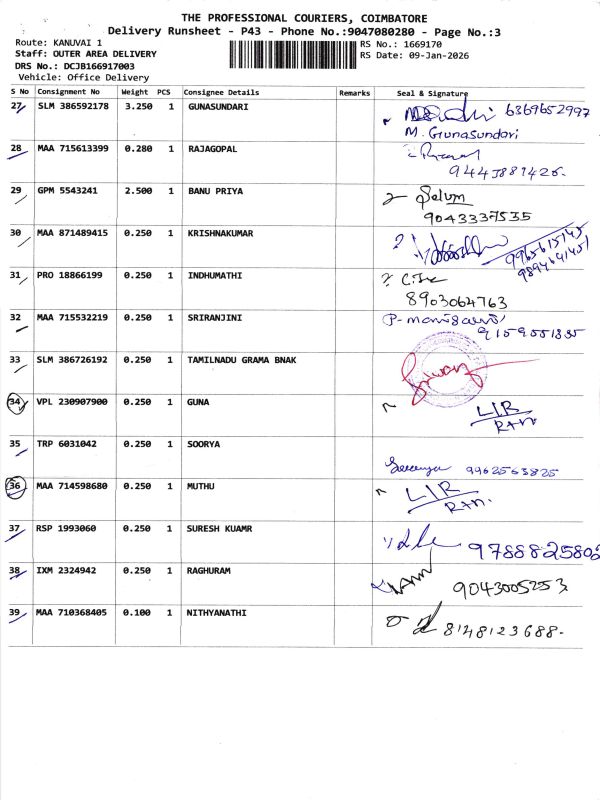 THE PROFESSIONAL COURIERS, COIMBATORE
Delivery Runsheet - P43 - Phone No.:9047080280 - Page No.:3
Route: KANUVAI 1
RS No.: 1669170
Staff: OUTER AREA DELIVERY
RS Date: 09-Jan-2026
DRS No.: DCJB166917003
Vehicle: Office Delivery
S No Consignment No Weight PCS Consignee Details Remarks Seal & Signature
27 SLM 386592178 3.250 1 GUNASUNDARI 6369652997
M. Gunasundari
28 MAA 715613399 0.280 1 RAJAGOPAL
29 GPM 5543241 2.500 1 BANU PRIYA Selvm
9043337535
30 MAA 871489415 0.250 1 KRISHNAKUMAR
9965615145
31 PRO 18866199 0.250 1 INDHUMATHI
8903064763
32 MAA 715532219 0.250 1 SRIRANJINI
33 SLM 386726192 0.250 1 TAMILNADU GRAMA BNAK
34 VPL 230907900 0.250 1 GUNA LIR
RAM
35 TRP 6031042 0.250 1 SOORYA
9962563825
36 MAA 714598680 0.250 1 MUTHU LIR
RAM.
37 RSP 1993060 0.250 1 SURESH KUAMR 9788825802
38 IXM 2324942 0.250 1 RAGHURAM 9043005253
39 MAA 710368405 0.100 1 NITHYANATHI 8148123688-